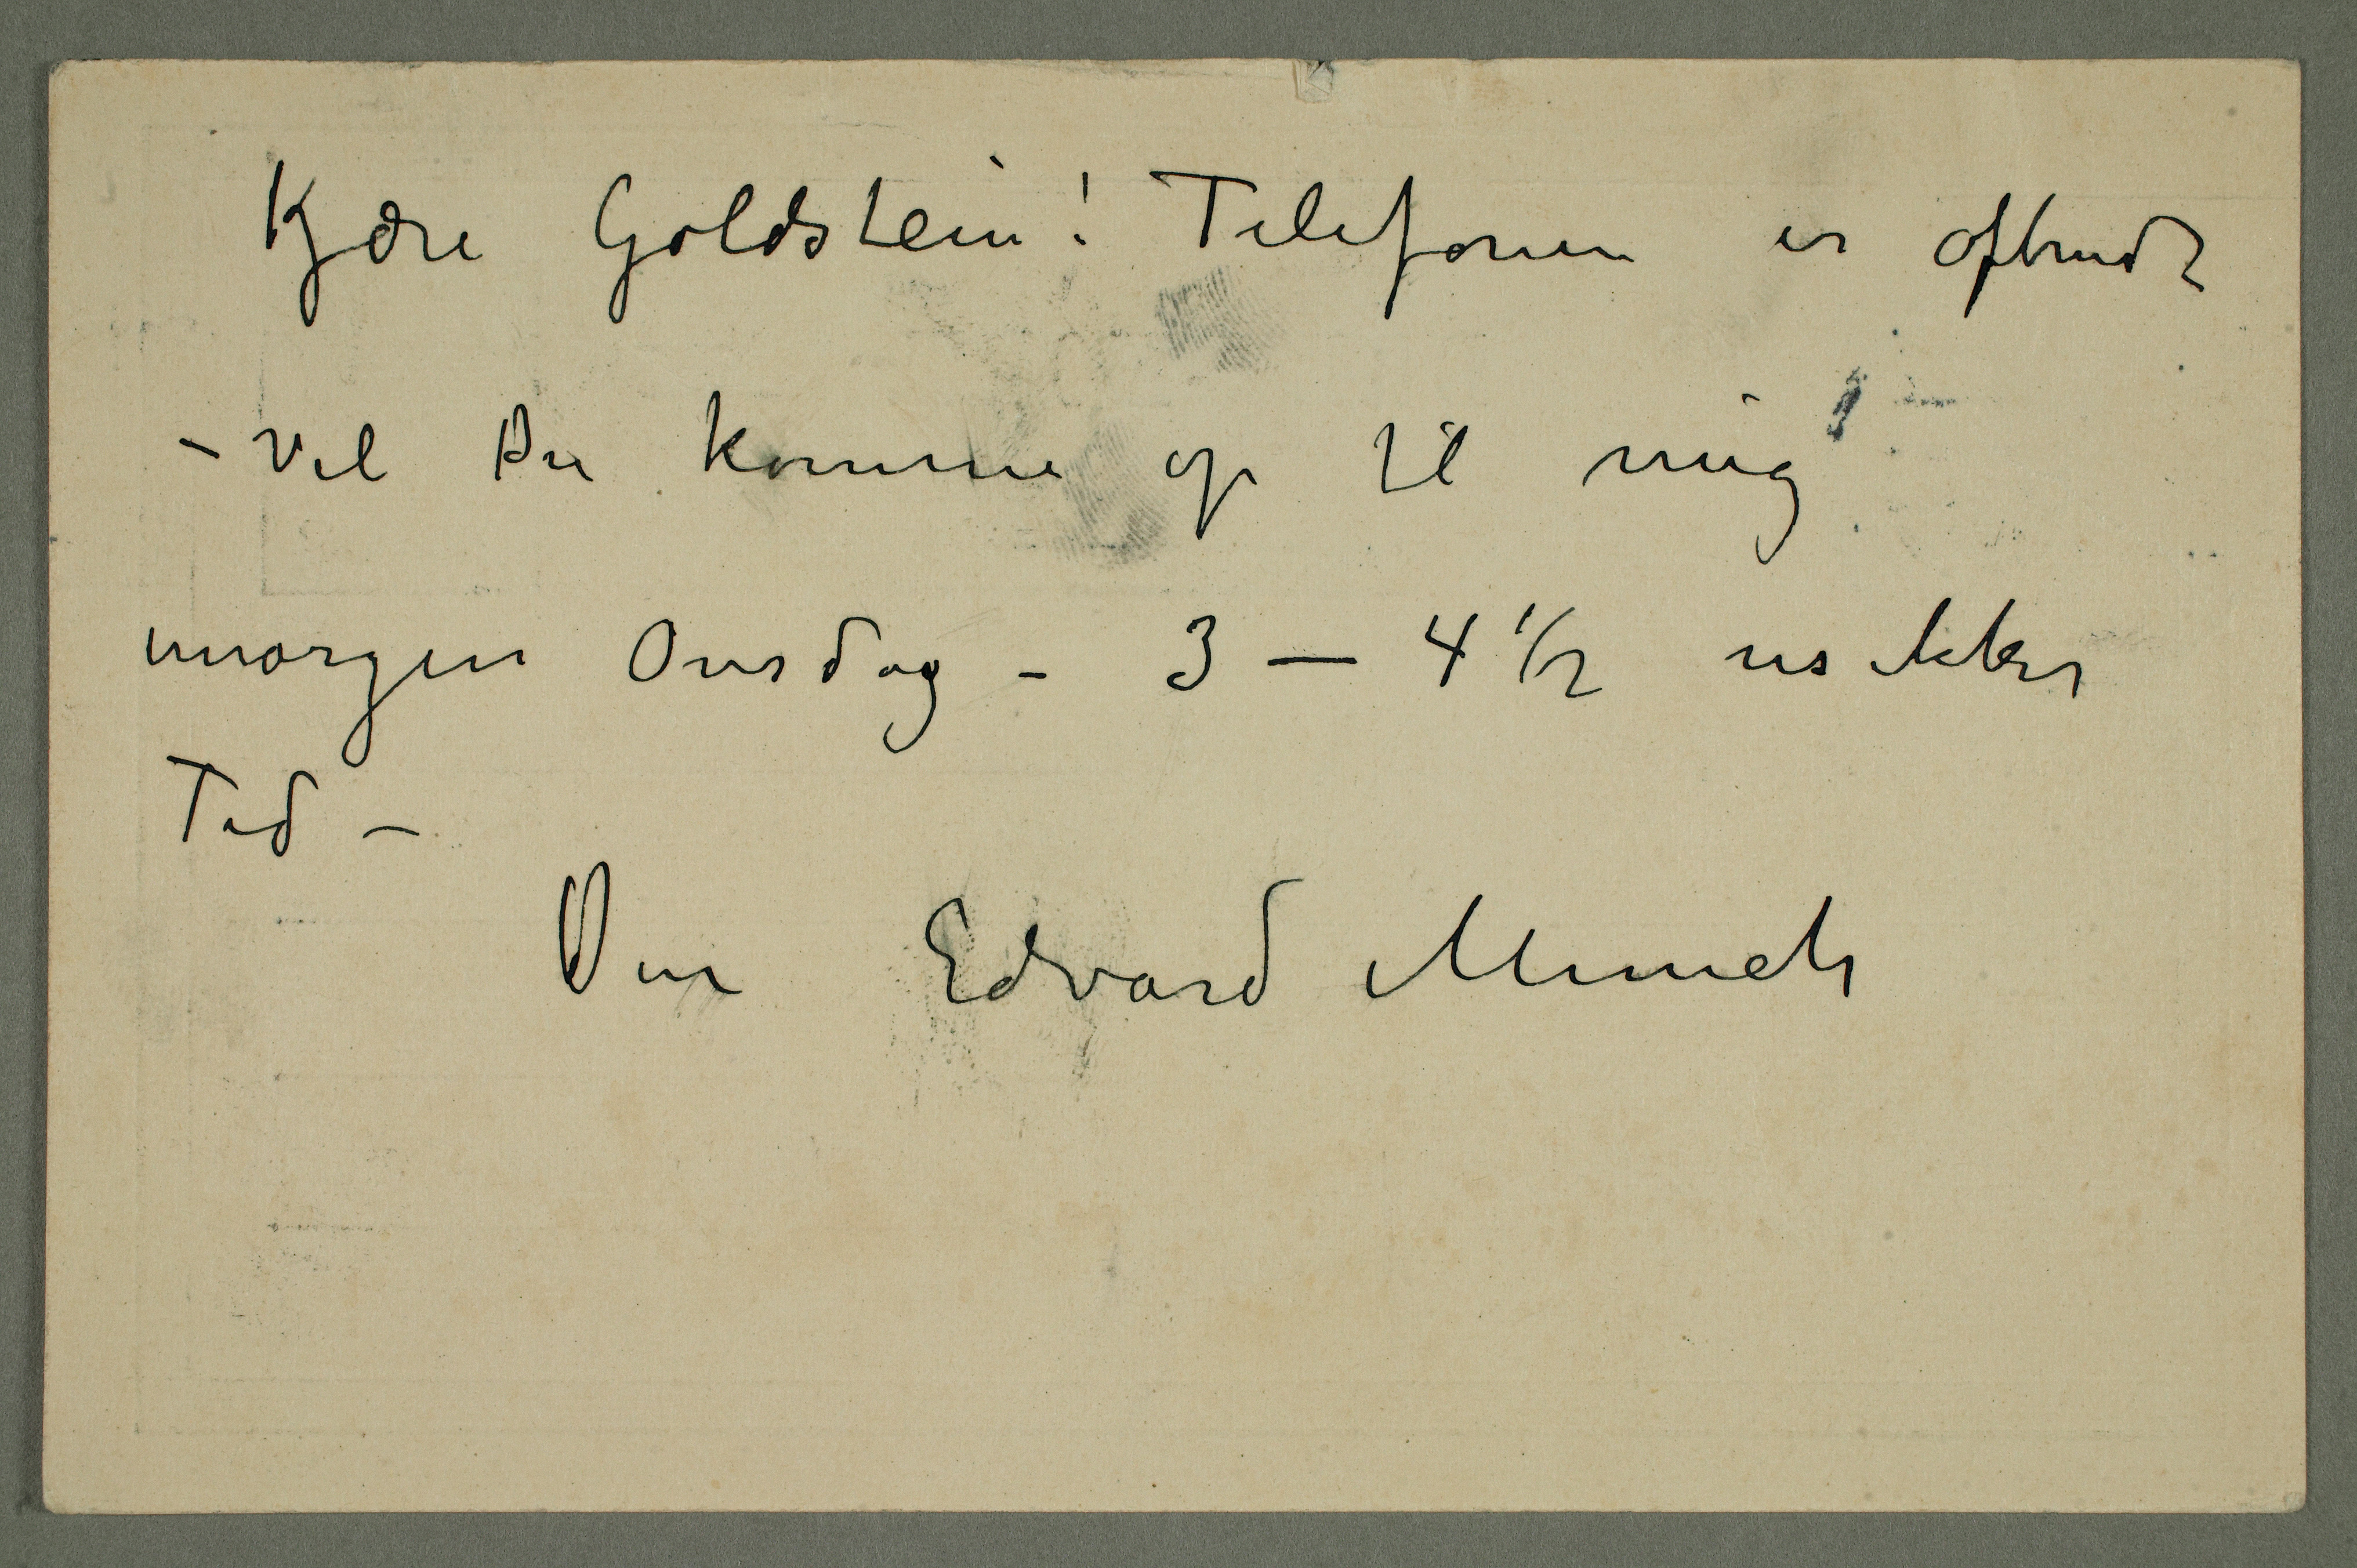 Kjære Goldstein! Telefonen er afbrudt
- Vil Du komme op til mig
imorgen Onsdag - 3 — 4 1/2 usikker
Tid –
Din Edvard Munch